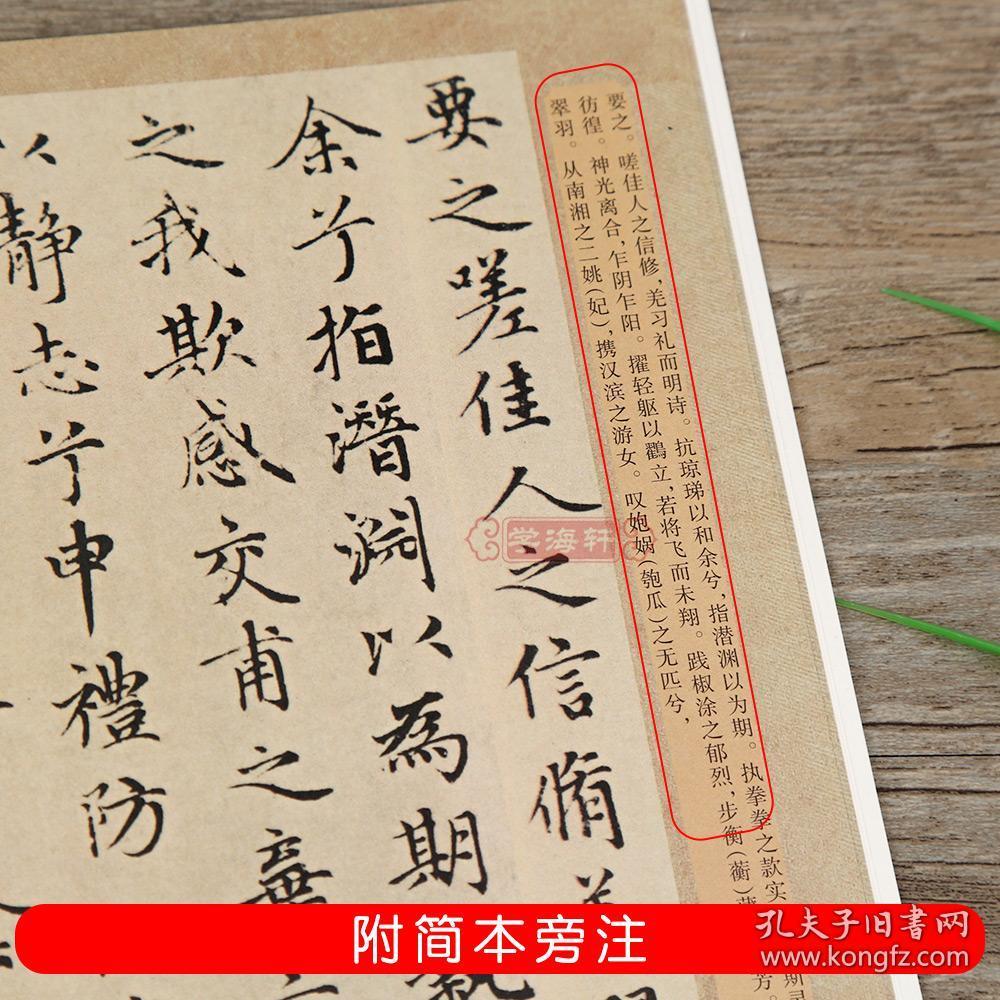 要之嗟佳人之信脩
余兮指潛淵以為期
之我欺感交甫之棄
以靜志兮申禮防
要之。嗟佳人之信修，羌习礼而明诗。抗琼珶以和余兮，指潜渊以为期。执拳拳之款实
彷徨。神光离合，乍阴乍阳。擢轻躯以鹳立，若将飞而未翔。践椒涂之郁烈，步衡（蘅）
翠羽。从南湘之二姚（妃），携汉滨之游女。叹㚿娲（匏瓜）之无匹兮，
学海轩
附简本旁注
孔夫子旧书网
www.kongfz.com